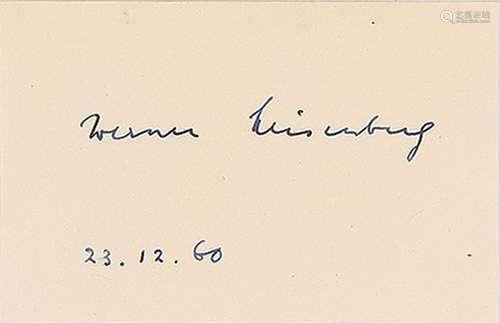 Werner Heisenberg
23.12.60